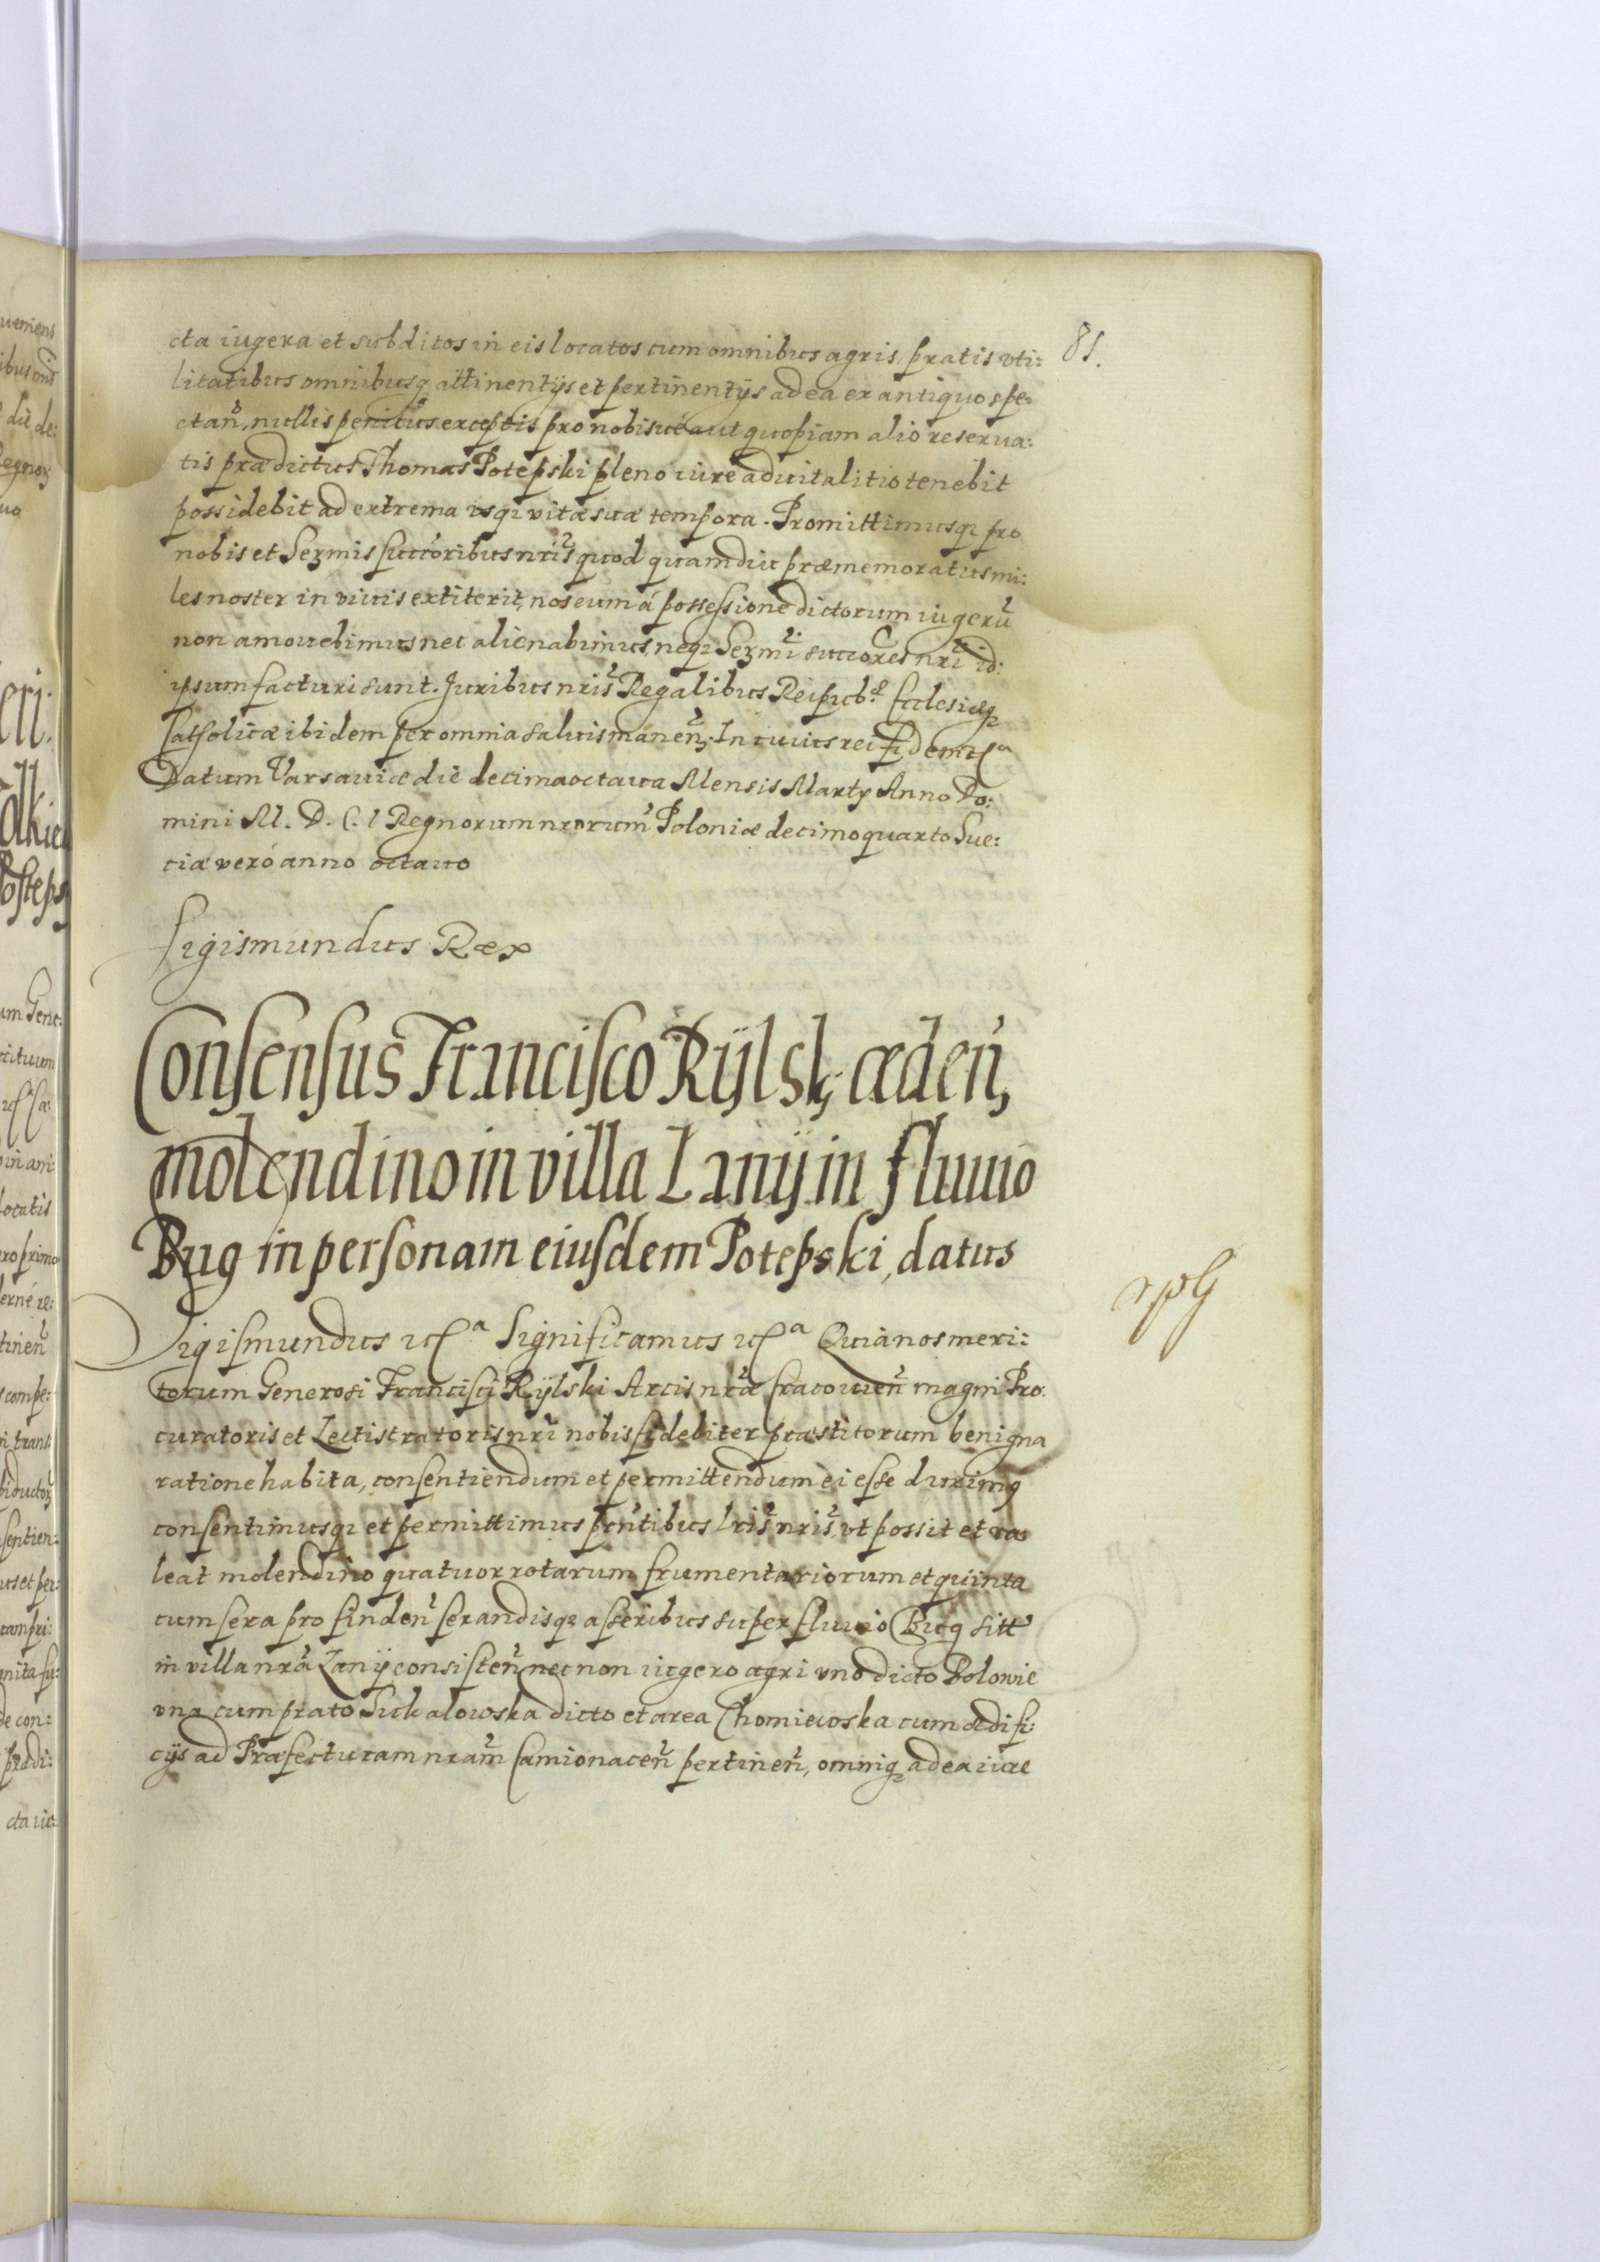 81.
cta iugera et subditos in eis locatos cum omnibus agris, pratis vti:
litatibus omnibusq attinentijs et pertinentijs ad ea ex antiquo spe:
ctan, nullis penitus exceptis pro nobis ue aut quopiam alio reserua:
tis praedictus Thomas Potepski pleno iure aduitalitio tenebit
possidebit ad extrema vsq vitae suae tempora. Promittimusq pro
nobis et Sermis succoribus nris quod quamdiu praememoratus mi:
les noster in viuis extiterit, nos eum á possessione dictorum iugeru
non amouebimus nec alienabimus, neq Sermi succores nri id:
ipsum facturi sunt. Juribus nris Regalibus Reipub. Ecclesiaeq
Catholicae ibidem per omnia saluis manen. In cuius rei fidem etca
Datum Varsauiae die decima octaua Mensis Martij Anno Do:
mini M. D. C. I Regnorum nrorum Poloniae decimo quarto Sue:
ciae veró anno octauo
Sigismundus Rex
Consensus Francisco Rÿlsk, ceden,
molendino in villa Lanÿ in fluuio
Bug in personam eiusdem Potepski, datus
Sigismundus etca Significamus etca Quia nos meri:
torum Generosi Francisci Rÿlski Arcis nrae Cracouien magni Pro
curatoris et Lectistratoris nri nobis fidebiter praestitorum benigna
ratione habita, consentiendum et permittendum ei esse duximq
consentimusq et permittimus pntibus lris nris, vt possit et va
leat molendino quatuor rotarum frumentariorum et quinta
cum sera pro finden serandisq asseribus super fluuio Bug sitt
in villa nra Lanÿ consisten nec non iugero agri vno dicto Polowie
vna cum prato Suckalowska dicto et area Chomiewska cum aedifi:
cijs ad Praefecturam nram Camionacen pertinen, omniq ad ea iure